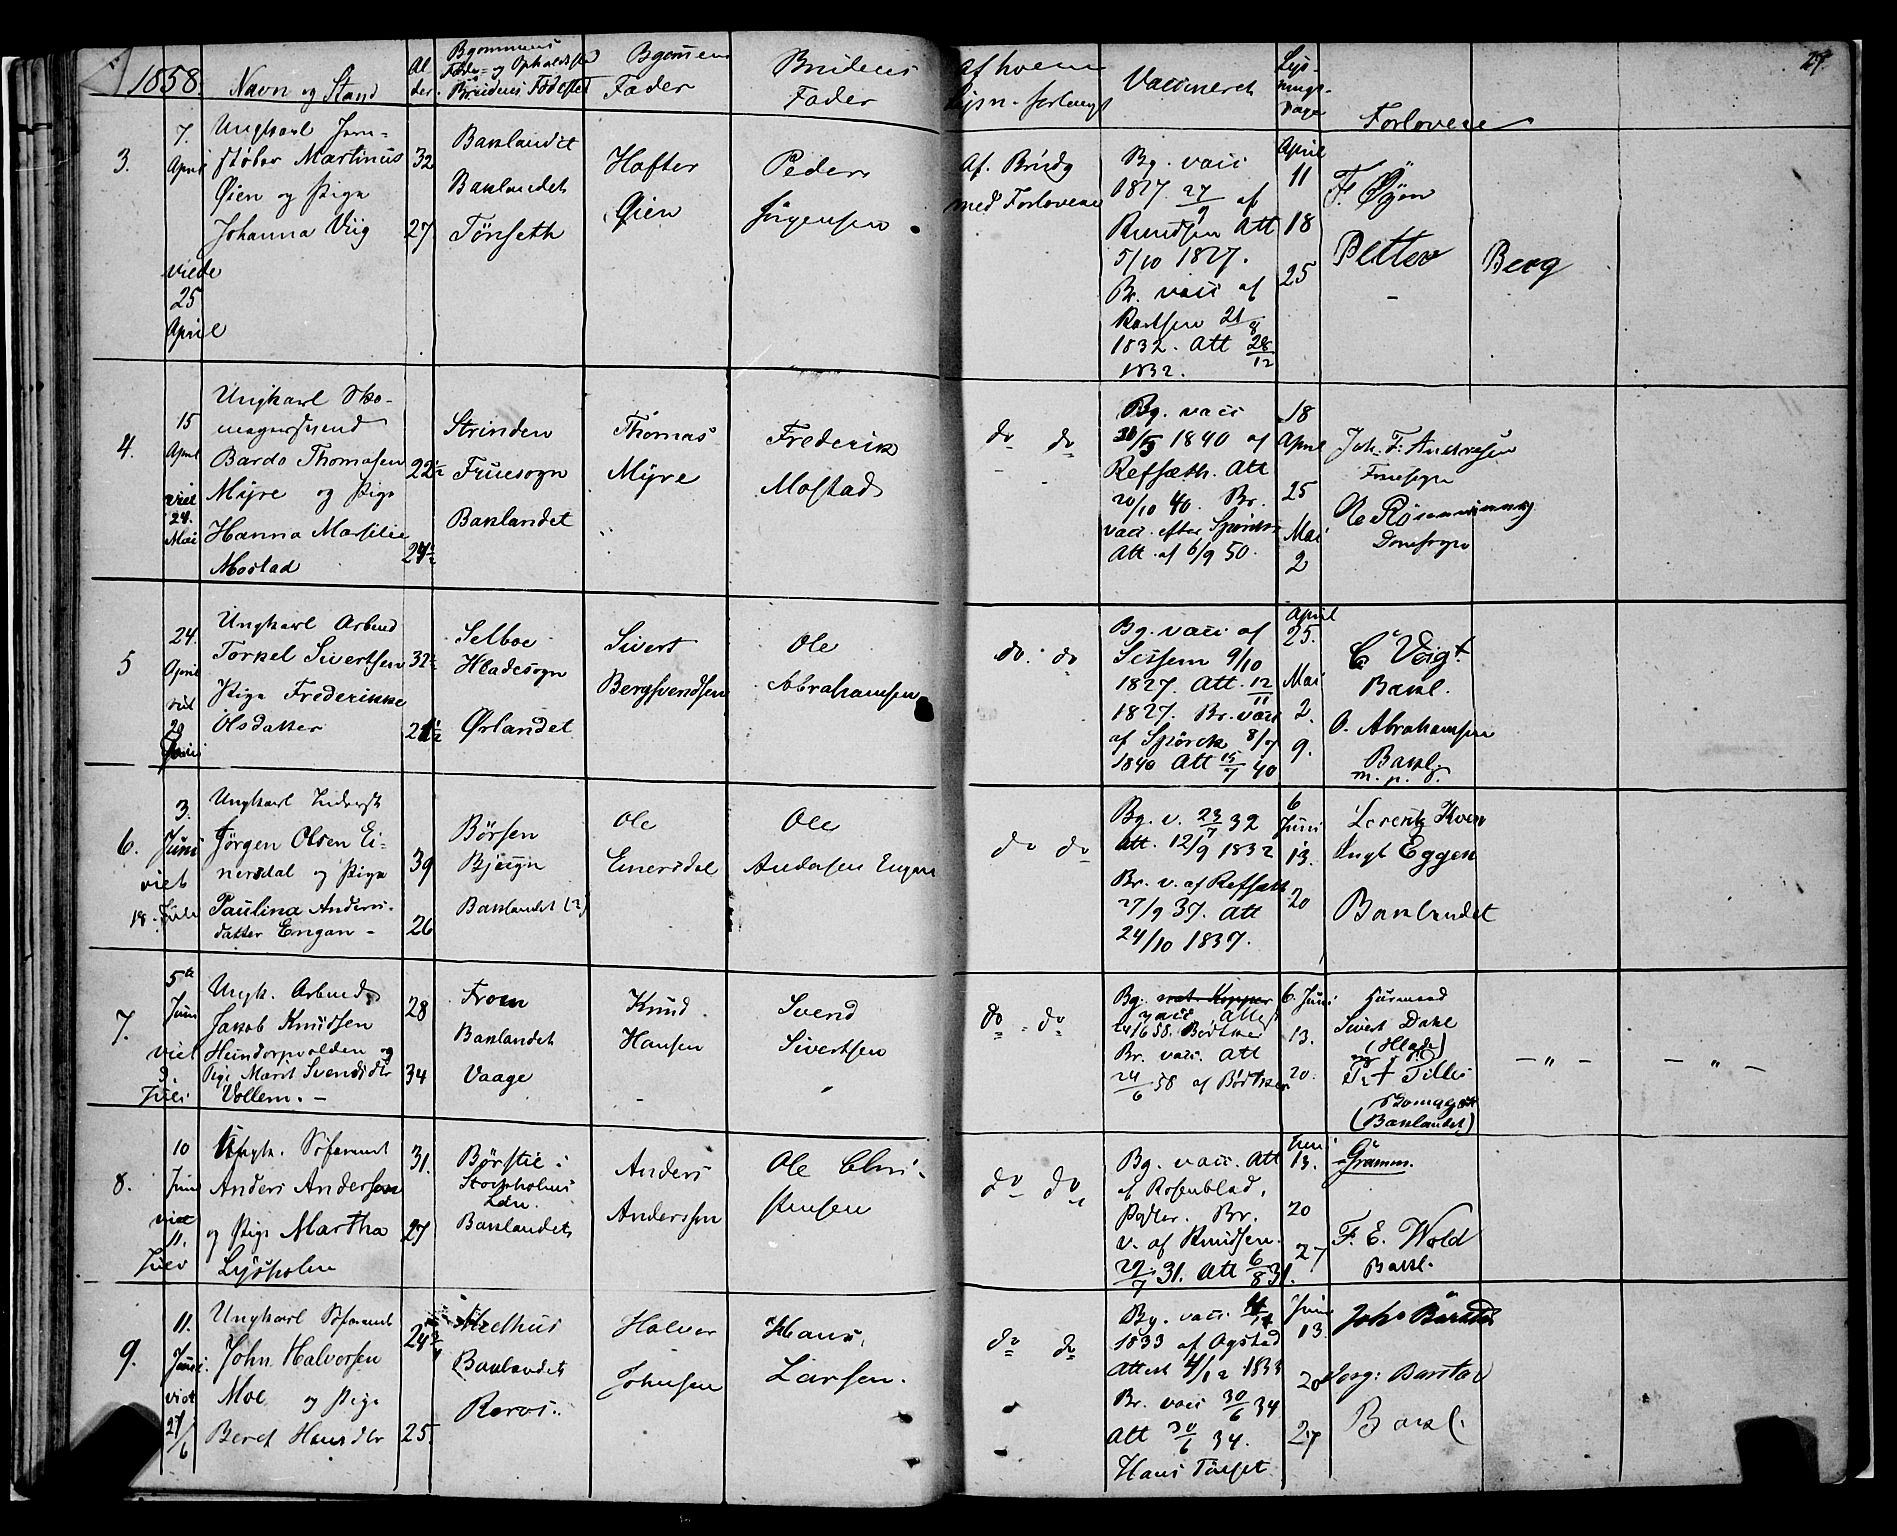 1858.
Navn og Stand
Al
der.
Bgommens
Føde- og Opholdsste
Brudens Fødested
Bgomens
Fader
Brudens
Fader
Af hvem
Lysn. forlangt
Vaccineret
Lys-
nings-
Dage
Forlovere
27.
3.
7.
April
viede
25
April
Ungkarl Jern-
støber Martinus
Øien og Pige
Johanna Viig
32
27
Baklandet
Baklandet
Tönseth
Hafter
Øien
Peder
Jörgensen
Af. Brudg
med Forlovere
Bg. vacc
1827 27/9 af
Knudsen Att
5/10 1827.
Br. vacc af
21/8
1832. Att 28/12
1832.
April
11
18
25
F. Öyen
Petter Berg
4.
15
April
viet
24.
Mai
Ungkarl Sko-
magersvend
Bardo Thomasen
Myre og Pige
Hanna Marselie
Mostad
22½
24½
Strinden
Fruesogn
Baklandet
Thomas
Myre
Frederik
Mostad
do do
Bg. vacc
/5 1840 af
Refsæth. Att
20/10 40. Br.
vacc. efter
Att. af 6/9 50.
18
April
25
Mai
2
Joh. F. Andresen
Fruesogn
Domsogn
5
24.
April
viet
20
Juni
Ungkarl Arbmd
Torkel Sivertsen
Pige Frederikke
Olsdatter
32½
21½
Selboe
Hladesogn
Ørlandet
Sivert
Bergsvendsen
Ole
Abrahamsen
do. do
Bg. vacc af
Sissem 9/10
1827. Att. 12/11
1827. Br. vacc
af Spörck 8/7
1840 Att 15/7 40
April
25.
Mai
2.
9.
C Voigt.
Bakl.
O. Abrahamsen
Bakl.
m. p.
6.
3.
Juni
viet
18. Juli
Ungkarl Inderst
Jørgen Olsen Ei-
nersdal og Pige
Paulina Anders-
datter Engan -
39
26
Börsen
Bjeugn
Baklandet (?)
Ole
Einersdal
Ole
Andersen Engan
do do
Bg. v. 23/7 32
Att. 12/9 1832
Br. v. af Refsæth
27/9 37. Att
24/10 1837.
6
Juni
13.
20
Lorentz Kven
Eggen
Baklandet
7.
5te
Juni
viet
9
Juli
Ungk. Arbmd
Jakob Knudsen
Hundorpvolden og
Pige Marit Svendsdtr
Vollem. -
28
34
From
Baklandet
Vaage
Knud
Hansen
Svend
Sivertsen
do - do
Bg. nat. Kopper
vacc Attest
24/6 58. Bødtker
Br. vacc. Att
24/6 58 af Bödtker
6. Juni
13.
20.
Husmand
Sivert Dahl
(Hlade)
og
Tillis
Skomager
(Baklandet)
— „ — — „ —
8.
10
Juni
viet
11.
Julv
Ungk. Söfarend
Anders Andersson
og Pige Martha
Lysholm
31.
27
Börstil i
Stockholms
Län.
Baklandet
Anders
Anderssen
Ole Chri-
stensen
do do
Bg. vacc. Att
af Rosenblad,
Br.
v. af Knudsen.
29/7 31. Att 6/8 31.
Juni
13.
20
27
Gramm.
F. E. Wold
Bakl.
9.
11.
Juni.
viet
27/6
Ungkarl Söfarend
John Halvorsen
Moe og Pige
Beret Hansdtr
24¾
25.
Melhus
Baklandet
Røros.
Halvor
Johnsen
Hans,
Larsen.
do do
Bg. vacc
1833 af Ogstad
Attest 4/12 1833
Br. vacc 30/6 34
Att 30/6 34.
Hans Tönset
Juni
13.
20
27
Joh. Barstad
Barstad
Bakl.